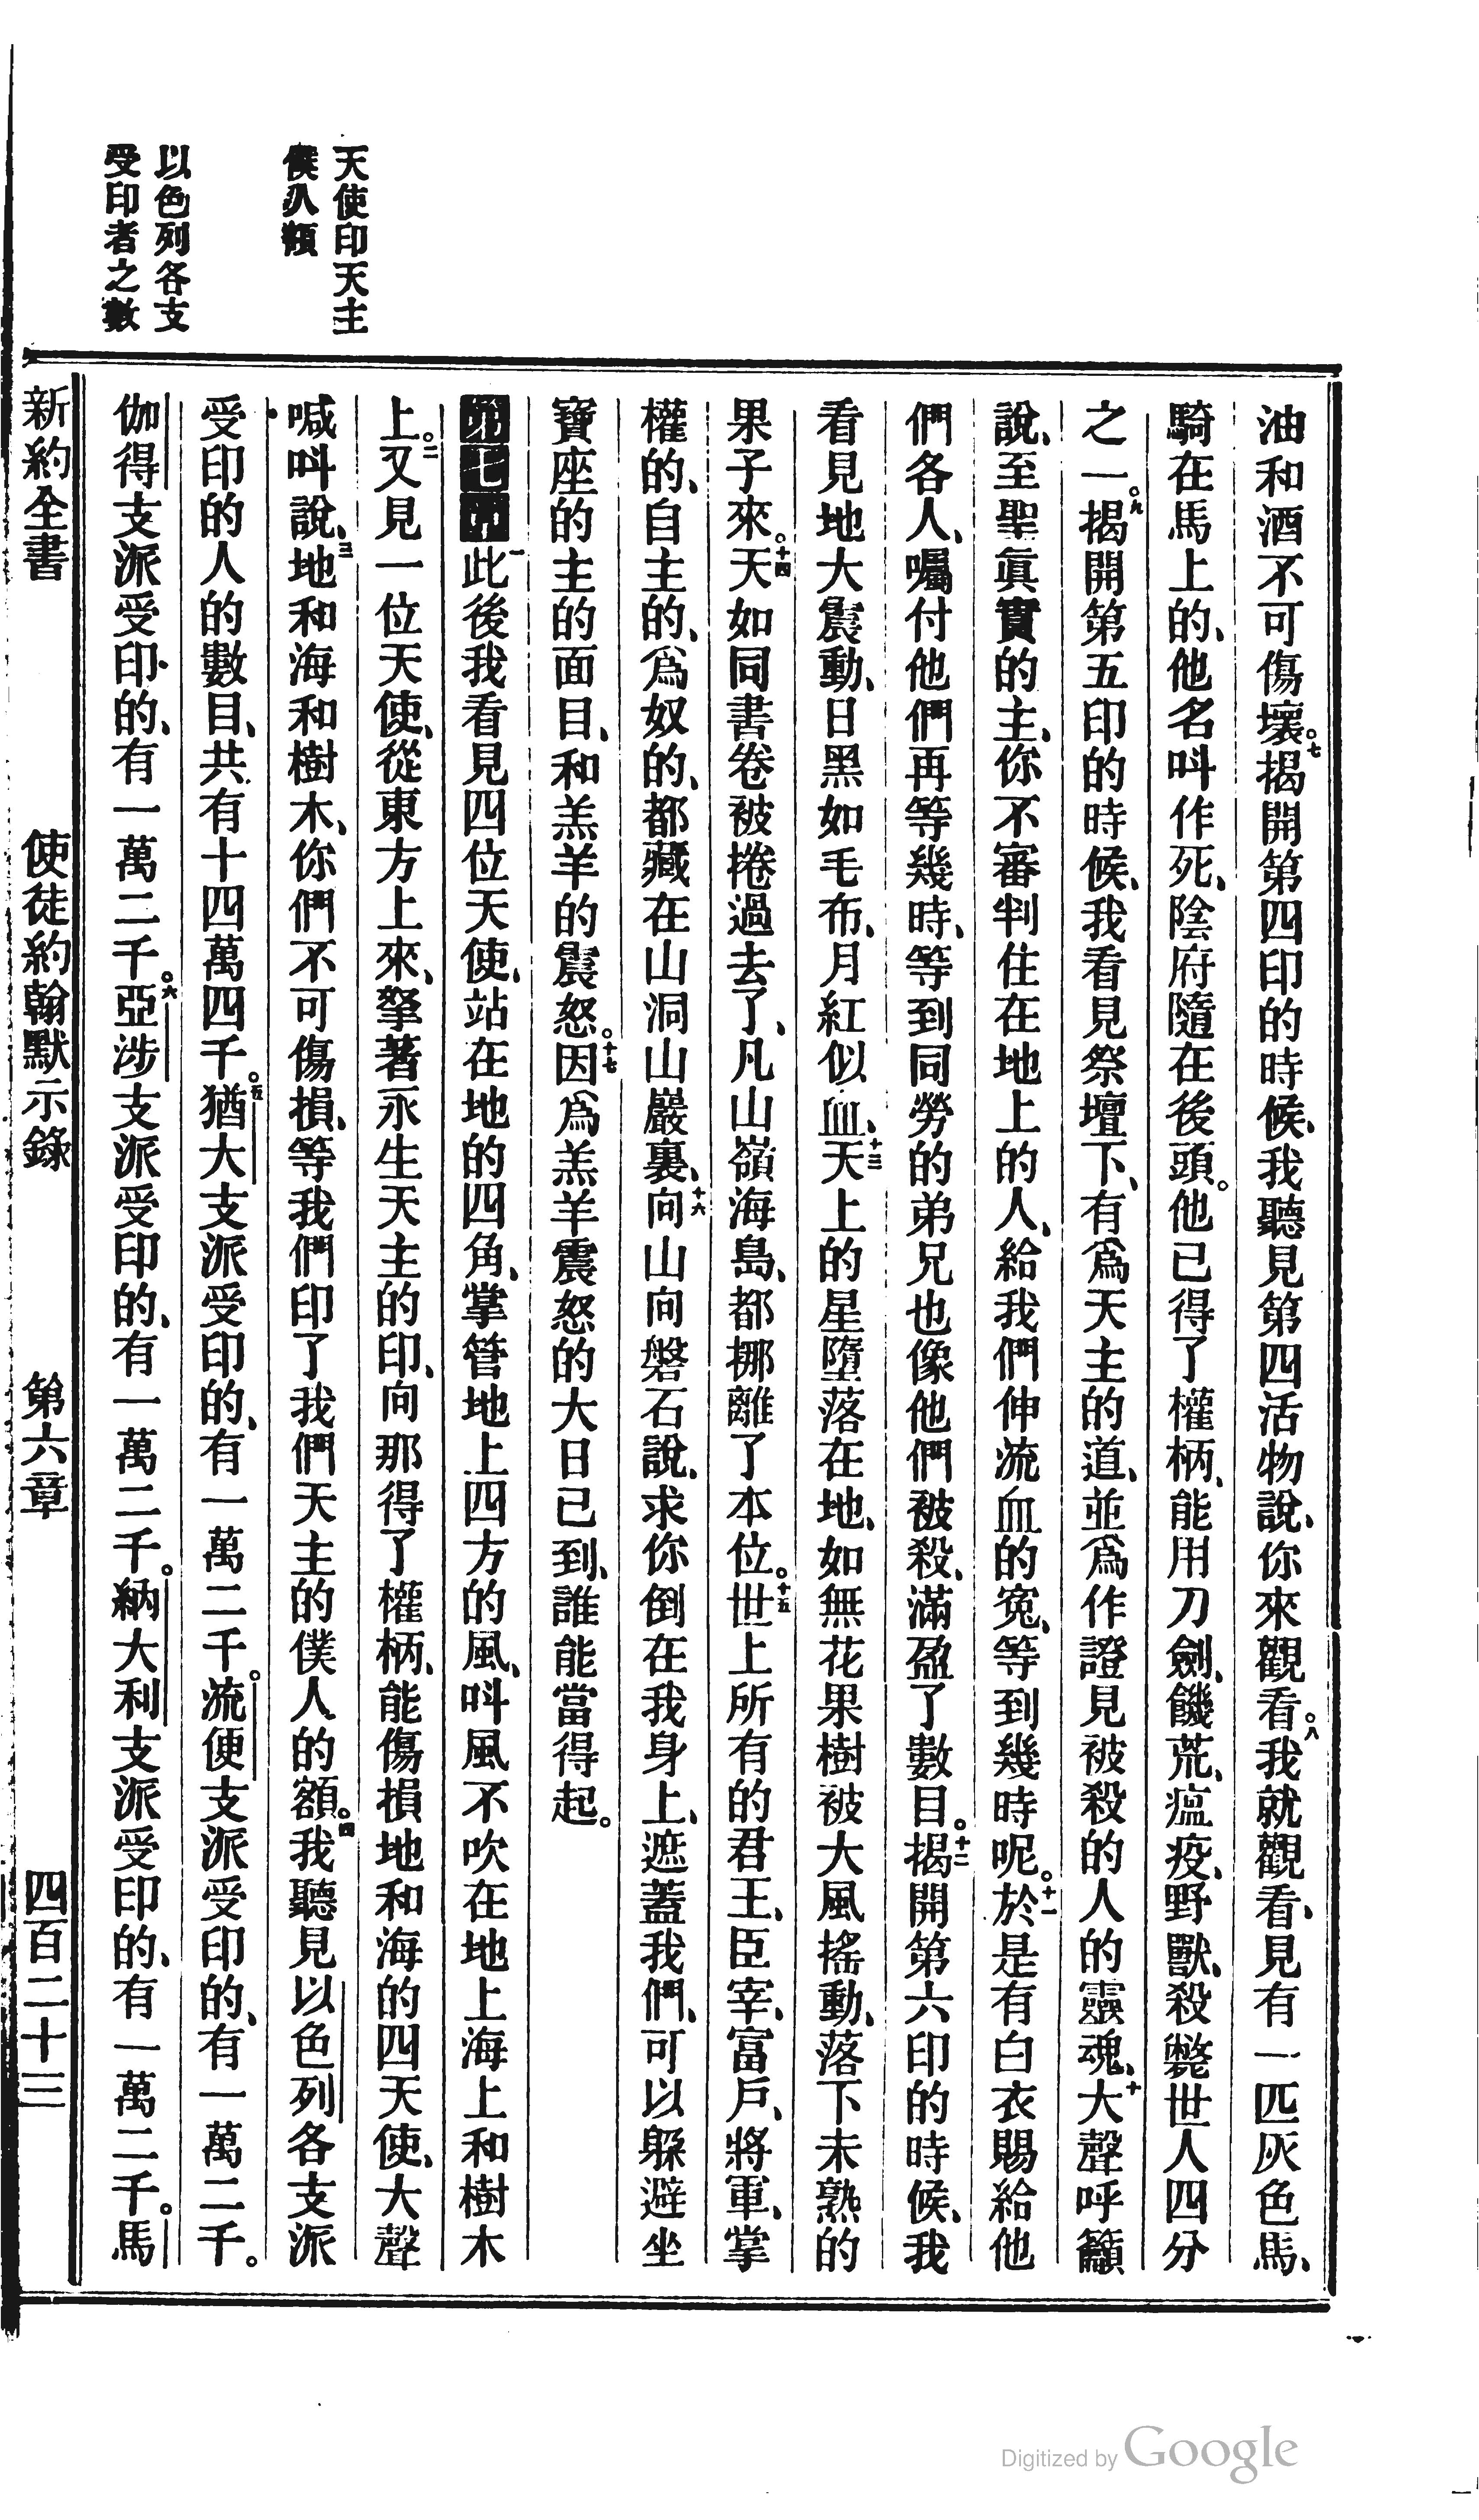 天使印天主
僕人額
以色列各支
受印者之數
油和酒不可傷壞。七揭開第四印的時候、我聽見第四活物說、你來觀看。八我就觀看、見有一匹灰色馬、
騎在馬上的、他名呌作死、陰府隨在後頭。他已得了權柄、能用刀劍、饑荒、瘟疫、野獸、殺斃世人四分
之一。九揭開第五印的時候、我看見祭壇下、有爲天主的道、並爲作證見被殺的人的靈魂、十大聲呼籲
說、至聖眞實的主、你不審判住在地上的人、給我們伸流血的寃、等到幾時呢。十一於是有白衣賜給他
們各人、囑付他們再等幾時、等到同勞的弟兄也像他們被殺、滿盈了數目。十二揭開第六印的時候、我
看見地大震動、日黑如毛布、月紅似血、十三天上的星墮落在地、如無花果樹被大風搖動、落下未熟的
果子來。十四天如同書卷被捲過去了、凡山嶺海島、都挪離了本位。十五世上所有的君王、臣宰、富戶、將軍、掌
權的、自主的、爲奴的、都藏在山洞山巖裏、十六向山向磐石說、求你倒在我身上、遮蓋我們、可以躱避坐
寶座的主的面目、和羔羊的震怒。十七因爲羔羊震怒的大日已到、誰能當得起。
第七章一此後我看見四位天使、站在地的四角、掌管地上四方的風、呌風不吹在地上海上和樹木
上。二又見一位天使、從東方上來、拏著永生天主的印、向那得了權柄、能傷損地和海的四天使、大聲
喊呌說、三地和海和樹木、你們不可傷損、等我們印了我們天主的僕人的額。四我聽見以色列各支派
受印的人的數目、共有十四萬四千。五猶大支派受印的、有一萬二千。流便支派受印的、有一萬二千。
伽得支派受印的、有一萬二千。六亞涉支派受印的、有一萬二千。納大利支派受印的、有一萬二千。馬
新約全書 使徒約翰默示錄 第六章 四百二十三
Digitized by Google